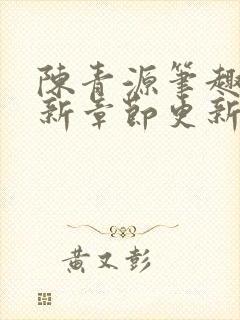 陳青源筆趣
新章節更新
黃又彭